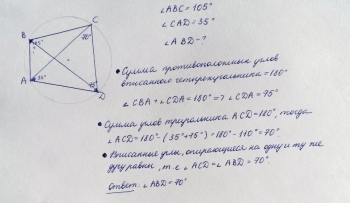 ∠ABC = 105°
∠CAD = 35°
∠ABD - ?
• Сумма противоположных углов
вписанного четырехугольника = 180°
∠CBA + ∠CDA = 180° => ∠CDA = 75°
• Сумма углов треугольника ACD = 180°, тогда
∠ACD = 180° - (35° + 75°) = 180° - 110° = 70°
• Вписанные углы, опирающиеся на одну и ту же
дугу равны, т.е ∠ACD = ∠ABD = 70°.
Ответ: ∠ABD = 70°
C
70°
B
A
35°
75°
D